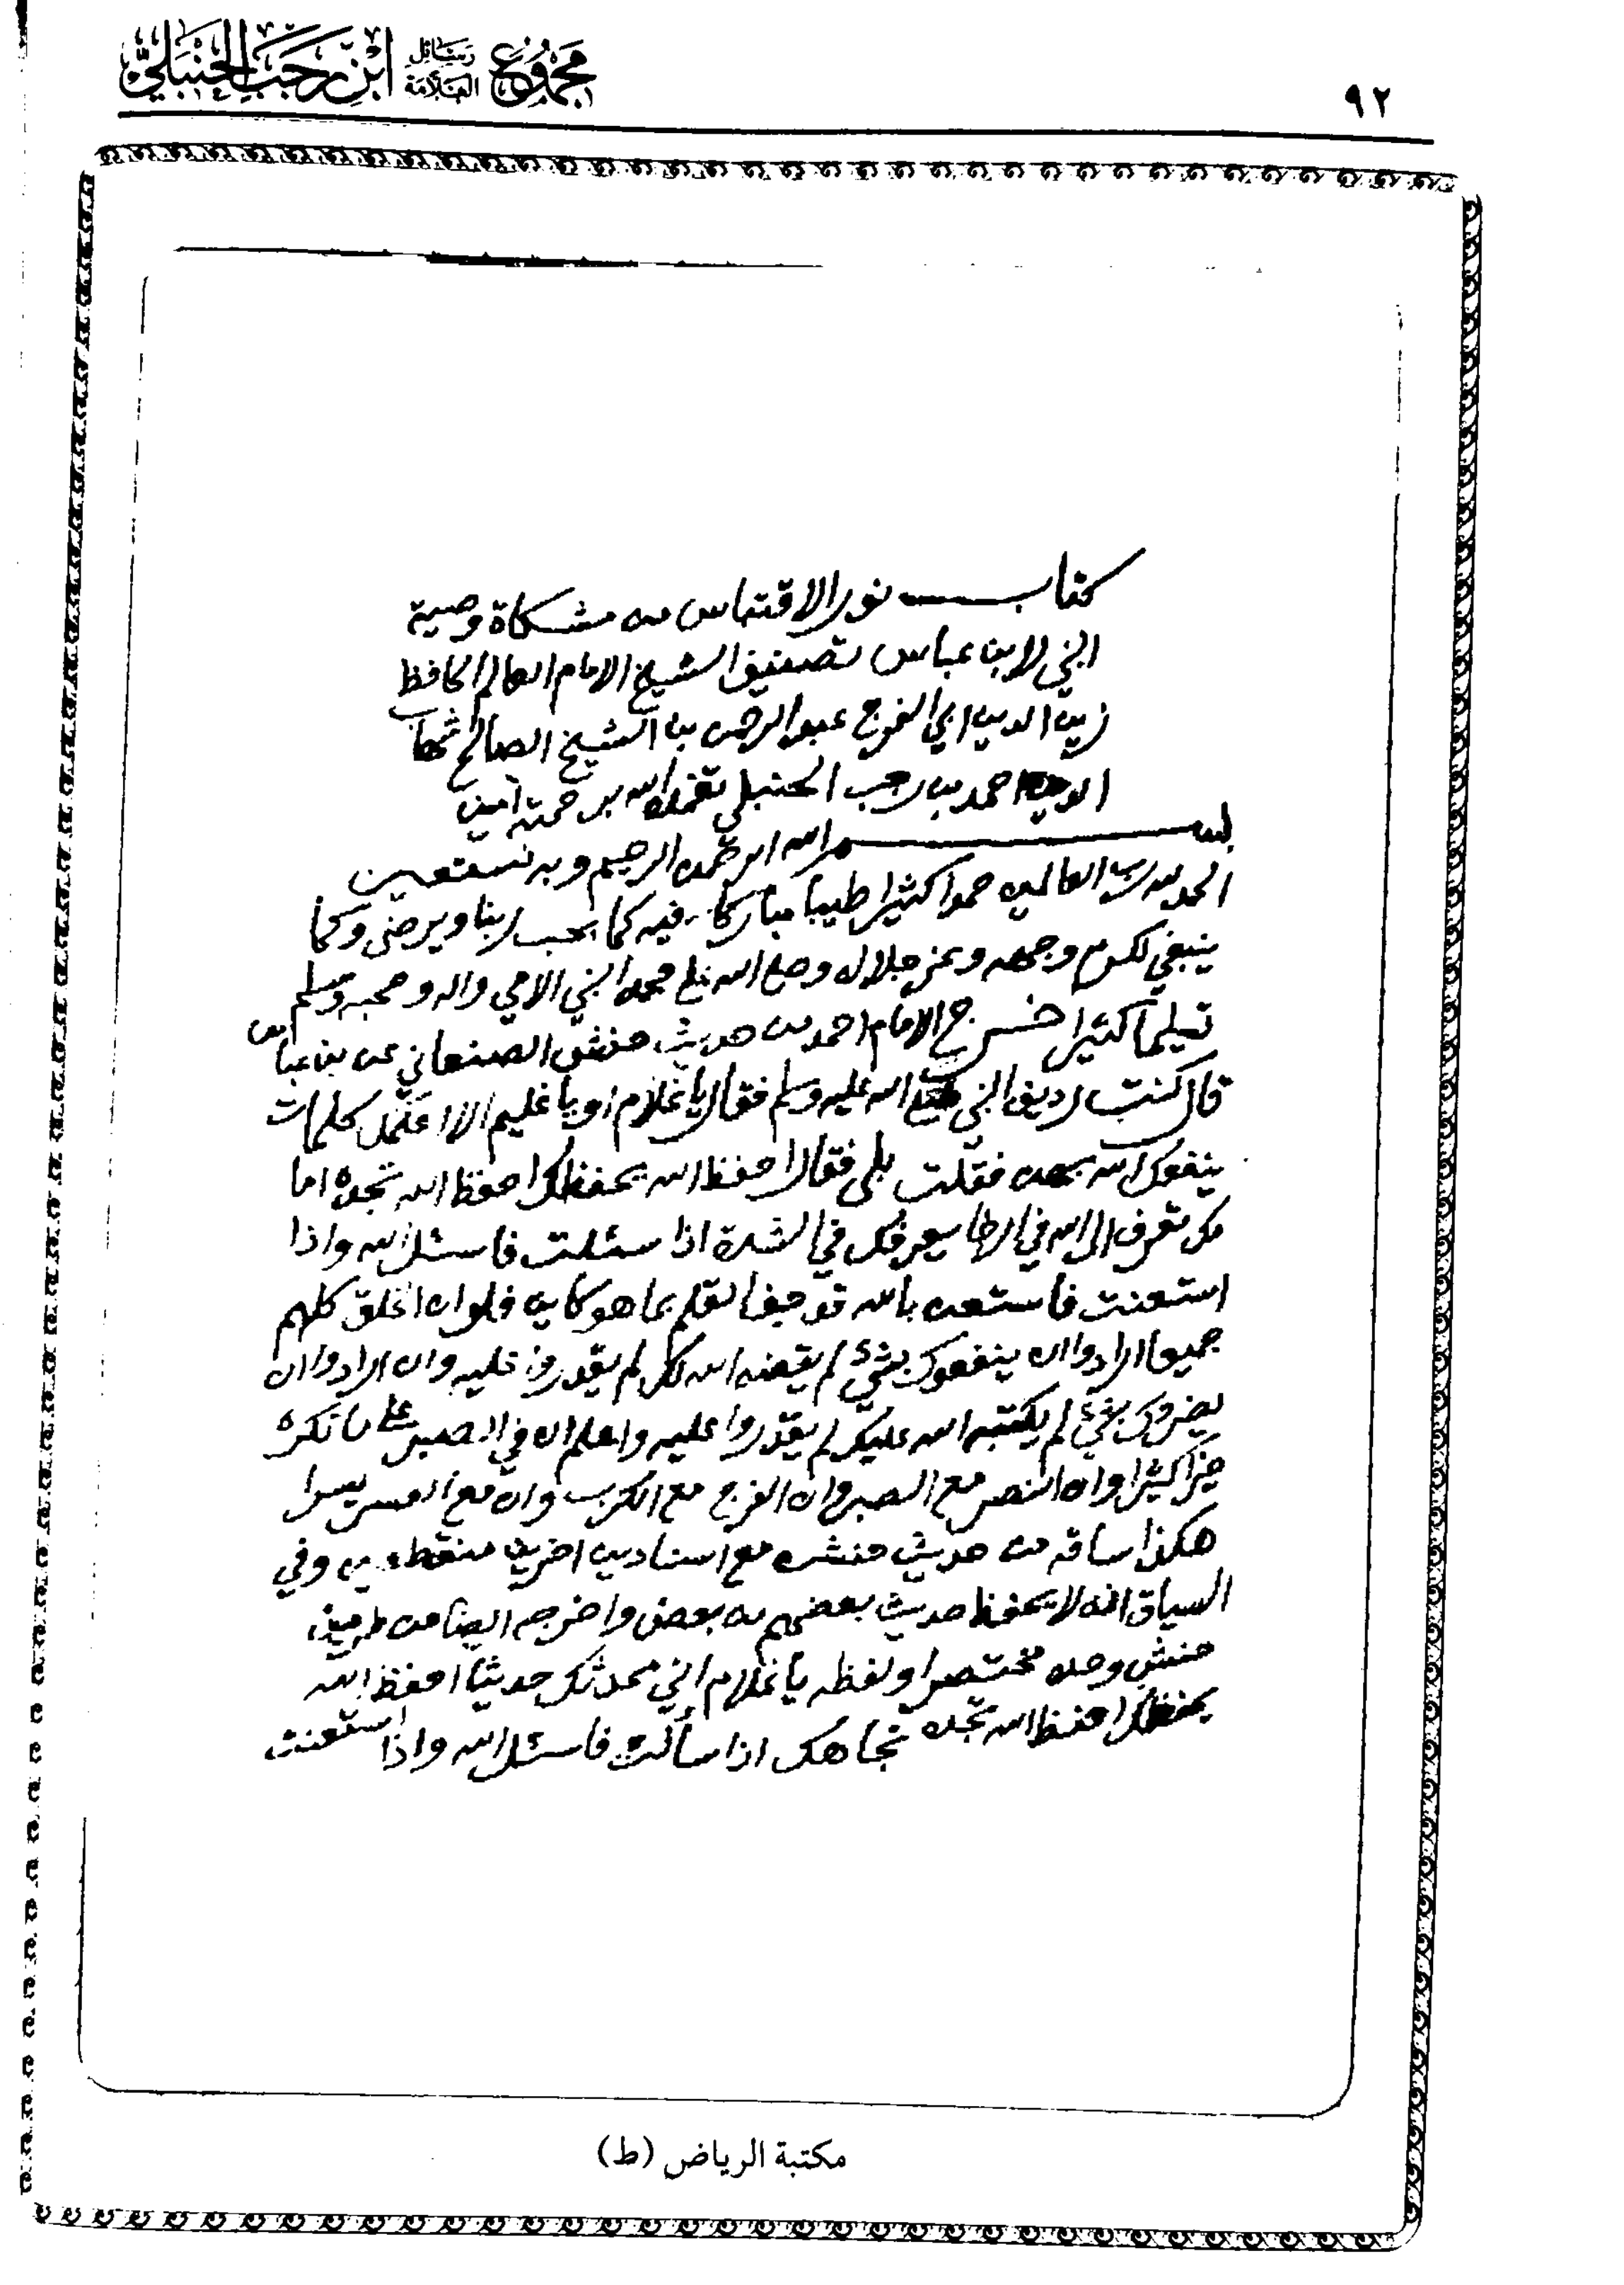 ٩٢
مجموع رسائل العلامة ابن رجب الحنبلي
كتاب نور الاقتباس من مشكاة وصية
النبي لابن عباس تصنيف الشيخ الامام العالم الحافظ
زين الدين ابي الفرج عبد الرحمن بن الشيخ الصالح شهاب
الدين احمد بن رجب الحنبلي تغمده الله برحمته آمين
بسم الله الرحمن الرحيم وبه نستعين
الحمد لله رب العالمين حمدا كثيرا طيبا مباركا فيه كما يحب ربنا ويرضى وكما
ينبغي لكرم وجهه وعز جلاله وصلى الله على محمد النبي الامي واله وصحبه وسلم
تسليما كثيرا خرج الامام احمد من حديث حنش الصنعاني عن بن عباس
قال كنت رديف النبي صلى الله عليه وسلم فقال يا غلام او يا غليم الا اعلمك كلمات
ينفعك الله بهن فقلت بلى فقال احفظ الله يحفظك احفظ الله تجده اما
مك تعرف الى الله في الرخا يعرفك في الشدة اذا سئلت فاسئل الله واذا
استعنت فاستعن بالله قد جف القلم بما هو كاين فلو ان الخلق كلهم
جميعا ارادوا ان ينفعوك بشيء لم يقضه الله لك لم يقدروا عليه وان ارادوا ان
يضروك بشيء لم يكتبه الله عليك لم يقدروا عليه واعلم ان في الصبر على ما تكره
خيرا كثيرا وان النصر مع الصبر وان الفرج مع الكرب وان مع العسر يسرا
هكذا ساقه من حديث حنش مع اسنادين اخرين منقطعين وفي
السياق انه لا يحفظ حديث بعضهم من بعض واخرجه ايضا من طريق
حنش وحده مختصرا ولفظه يا غلام اني محدثك حديثا احفظ الله
يحفظك احفظ الله تجده تجاهك اذا سألت فاسئل الله واذا استعنت
مكتبة الرياض (ط)